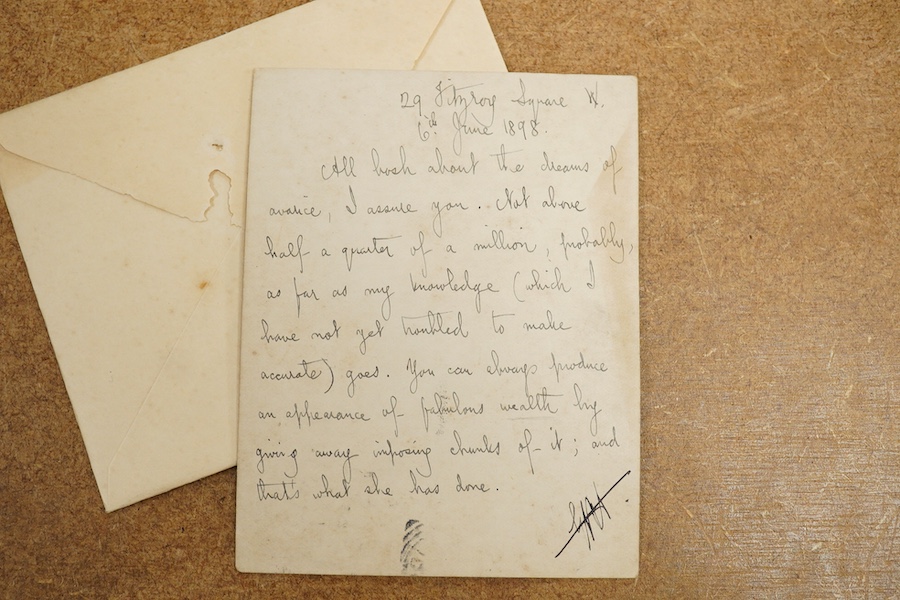 29 Fitzroy Square W.
6th June 1898.
All bosh about the dreams of
avarice, I assure you. Not above
half a quarter of a million, probably,
as far as my knowledge (which I
have not yet troubled to make
accurate) goes. You can always produce
an appearance of fabulous wealth by
giving away imposing chunks of it; and
that's what she has done.